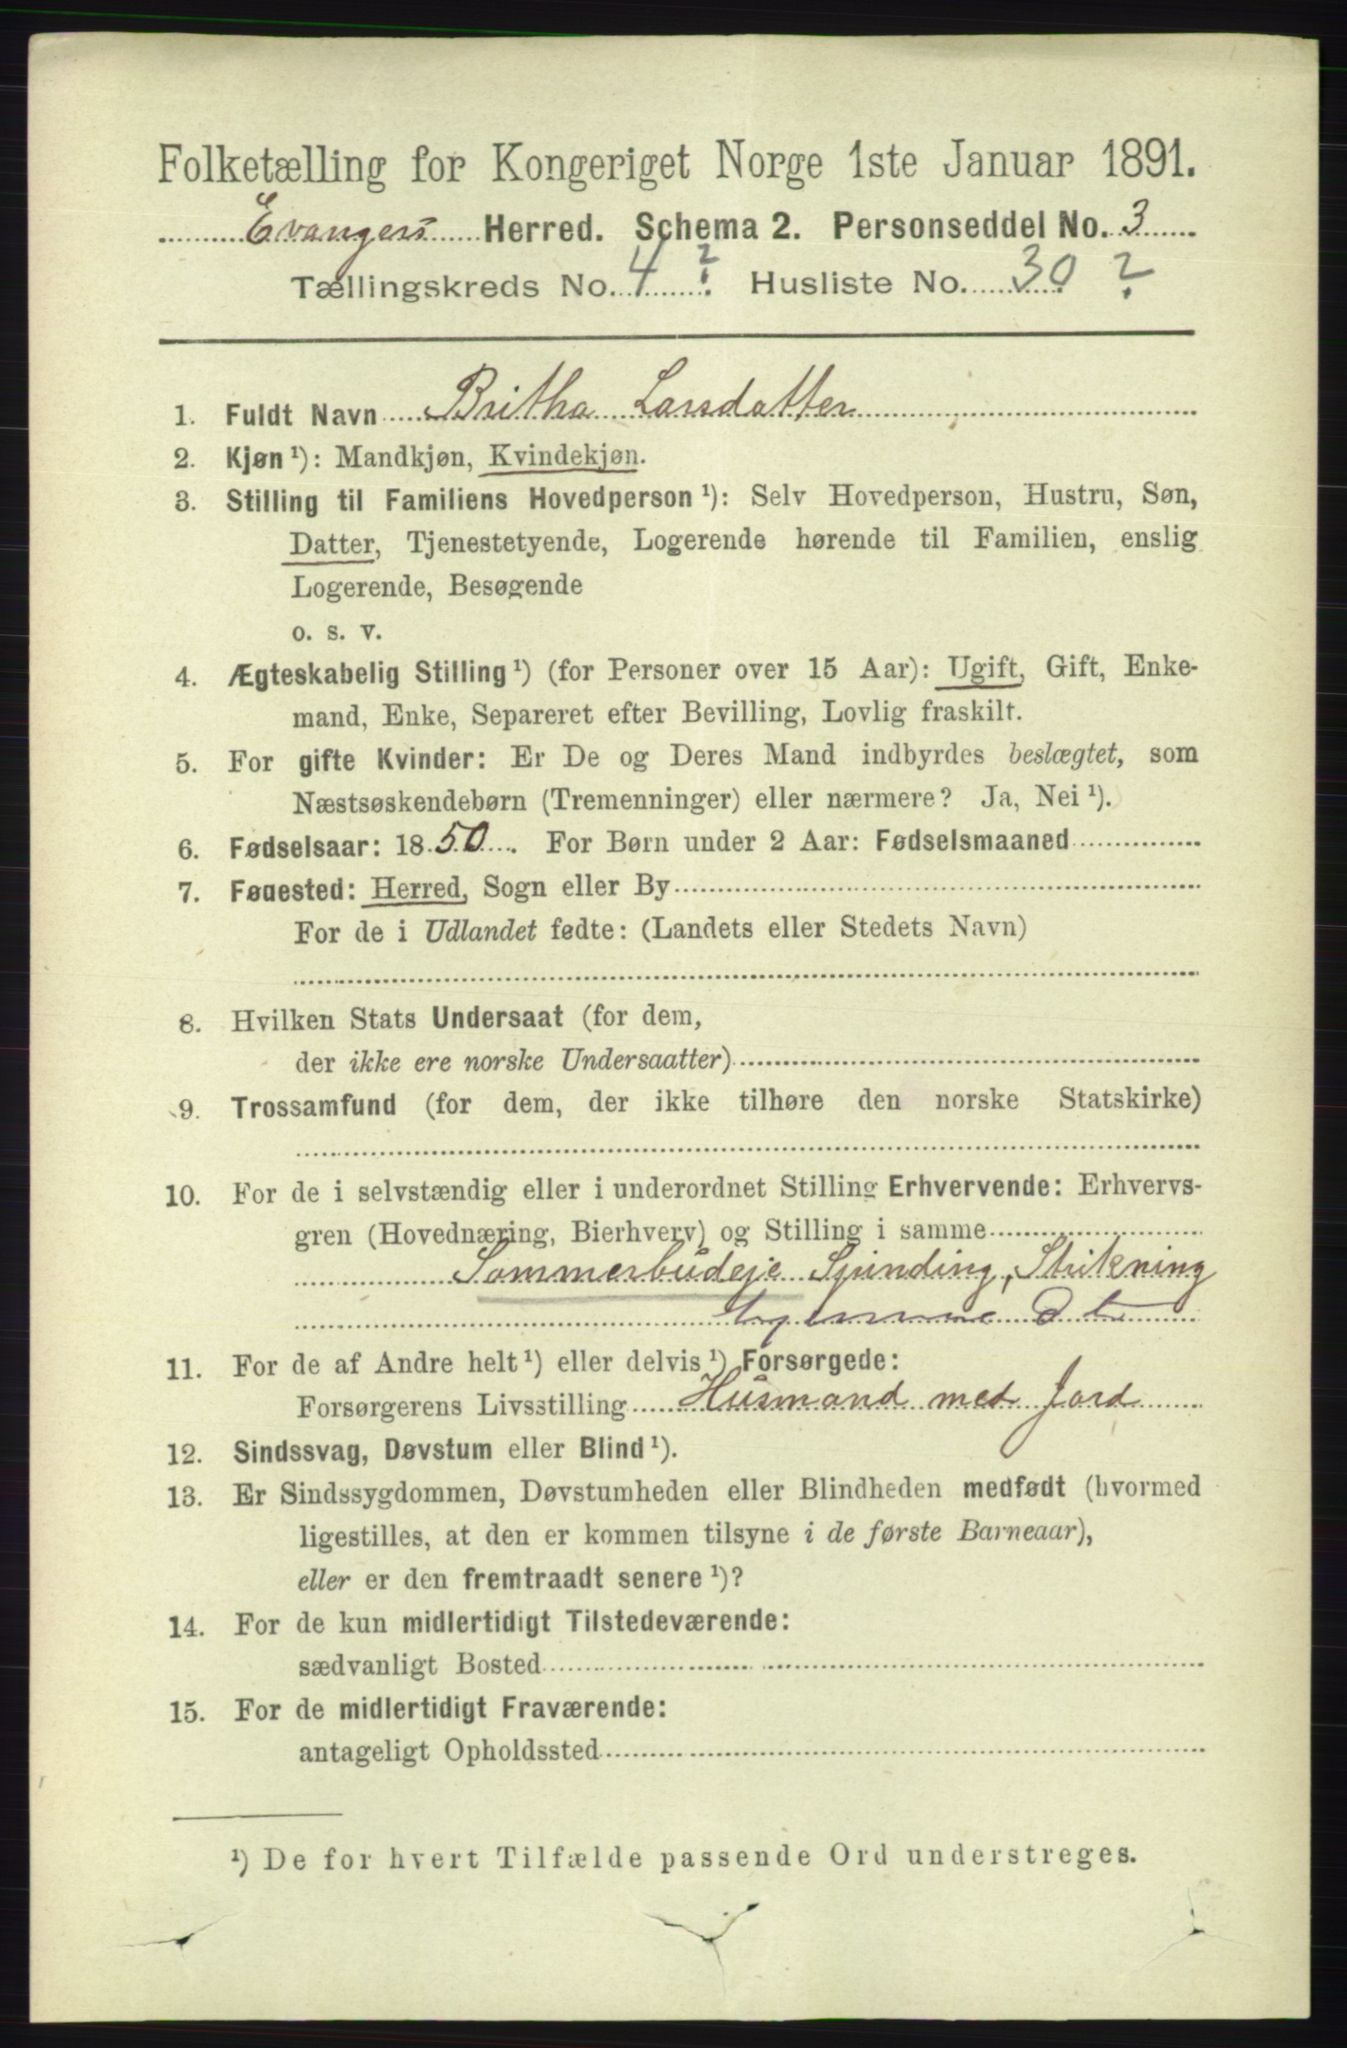 Folketælling for Kongeriget Norge 1ste Januar 1891.
Evangers Herred. Schema 2. Personseddel No. 3
Tællingskreds No. 4 ? Husliste No. 30 ?
1. Fuldt Navn Britha Larsdatter
2. Kjøn ¹): Mandkjøn, Kvindekjøn.
3. Stilling til Familiens Hovedperson ¹): Selv Hovedperson, Hustru, Søn,
Datter, Tjenestetyende, Logerende hørende til Familien, enslig
Logerende, Besøgende
o. s. v.
4. Ægteskabelig Stilling ¹) (for Personer over 15 Aar): Ugift, Gift, Enke-
mand, Enke, Separeret efter Bevilling, Lovlig fraskilt.
5. For gifte Kvinder: Er De og Deres Mand indbyrdes beslægtet, som
Næstsøskendebørn (Tremenninger) eller nærmere? Ja, Nei ¹).
6. Fødselsaar: 1850. For Børn under 2 Aar: Fødselsmaaned
7. Føuested: Herred, Sogn eller By
For de i Udlandet fødte: (Landets eller Stedets Navn)
8. Hvilken Stats Undersaat (for dem,
der ikke ere norske Undersaatter)
9. Trossamfund (for dem, der ikke tilhøre den norske Statskirke)
10. For de i selvstændig eller i underordnet Stilling Erhvervende: Erhvervs-
gren (Hovednæring, Bierhverv) og Stilling i samme
Sommerbudeje Spinding, Strikning
11. For de af Andre helt ¹) eller delvis ¹) Forsørgede:
Forsørgerens Livsstilling Husmand med Jord
12. Sindssvag, Døvstum eller Blind ¹).
13. Er Sindssygdommen, Døvstumheden eller Blindheden medfødt (hvormed
ligestilles, at den er kommen tilsyne i de første Barneaar),
eller er den fremtraadt senere ¹)?
14. For de kun midlertidigt Tilstedeværende:
sædvanligt Bosted
15. For de midlertidigt Fraværende:
antageligt Opholdssted
¹) De for hvert Tilfælde passende Ord understreges.